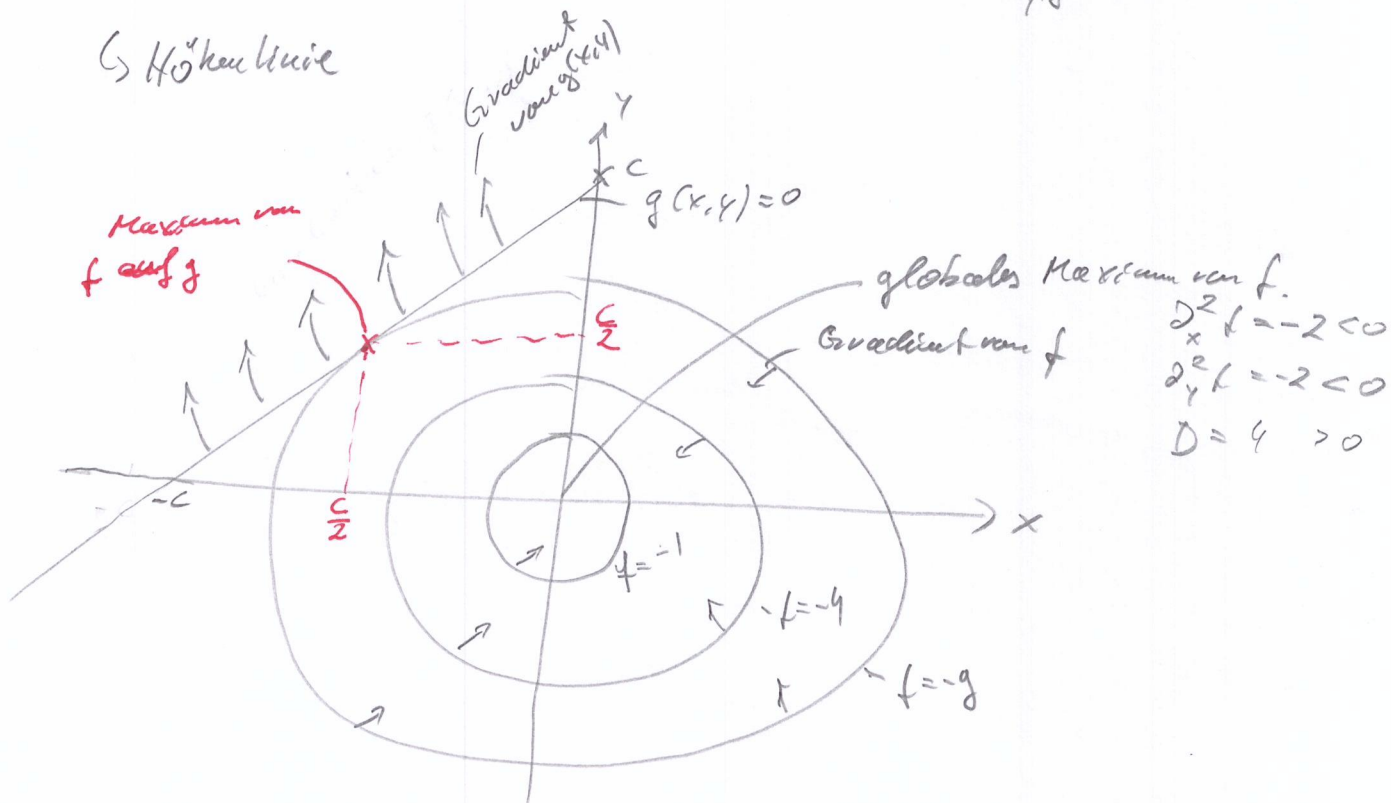 ↳ Höhenlinie
Gradient
von g(x,y)
y
C
g(x,y)=0
Maximum von
f auf g
globales Maximum von f.
∂²ₓ f = -2 < 0
Gradient von f
∂²ᵧ f = -2 < 0
D = 4 > 0
C/2
-C
C/2
x
f=-1
-f=-4
-f=-9